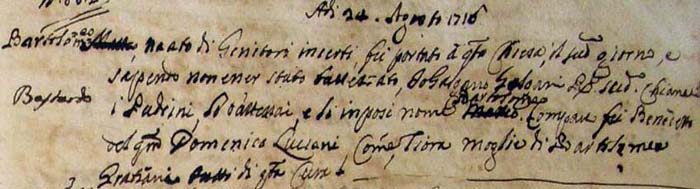 Adi 24. Agosto 1716
Bartolomeo nato di Genitori incerti fu portato à qta Chiesa, il sud giorno, e
sapendo non esser stato battezato, Io Gasparo Chiamai
Bastardo
i Padrini, lo battezai, e li imposi nome Bartolomeo Compare fu Benedetto
del qm Domenico Luciani Comre, Fiora moglie di Bartolomeo
Gratiani tutti di qta Cura